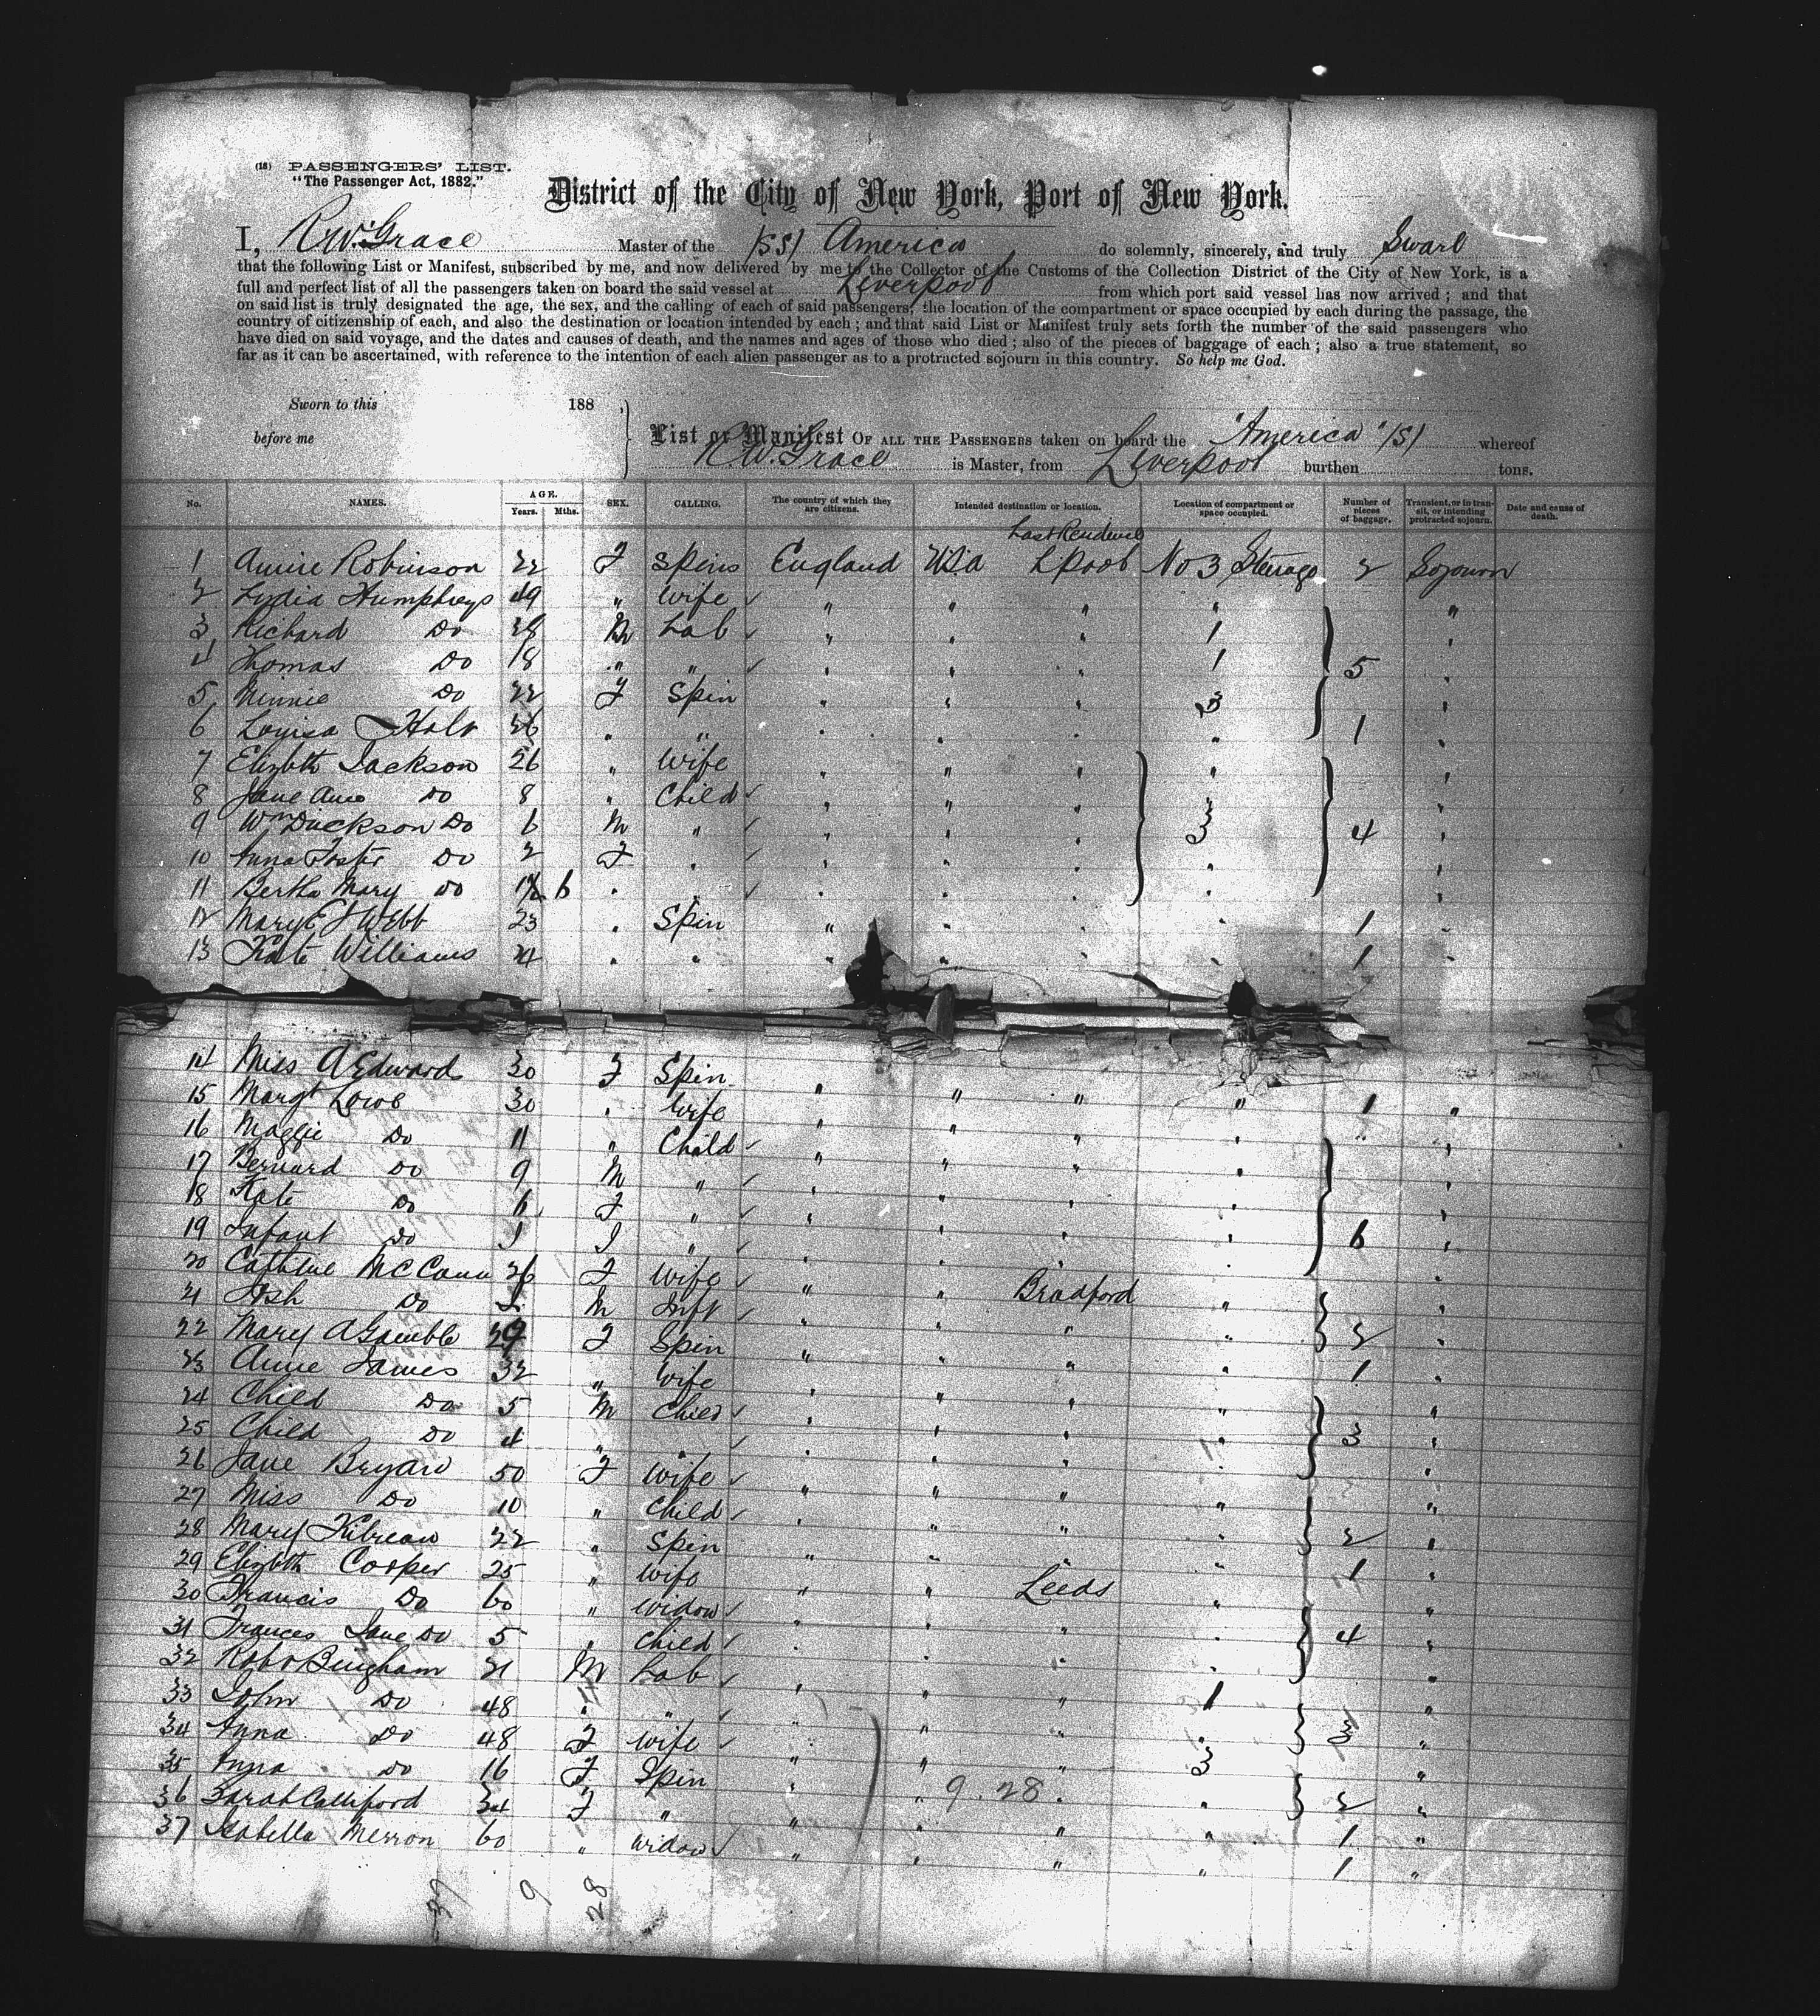 (18) PASSENGERS' LIST.
"The Passenger Act, 1882."
District of the City of New York, Port of New York.
I, R.W. Grace Master of the /SS/ America do solemnly, sincerely, and truly Swear
that the following List or Manifest, subscribed by me, and now delivered by me to the Collector of the Customs of the Collection District of the City of New York, is a
full and perfect list of all the passengers taken on board the said vessel at Liverpool from which port said vessel has now arrived; and that
on said list is truly designated the age, the sex, and the calling of each of said passengers, the location of the compartment or space occupied by each during the passage, the
country of citizenship of each, and also the destination or location intended by each; and that said List or Manifest truly sets forth the number of the said passengers who
have died on said voyage, and the dates and causes of death, and the names and ages of those who died; also of the pieces of baggage of each; also a true statement, so
far as it can be ascertained, with reference to the intention of each alien passenger as to a protracted sojourn in this country. So help me God.
Sworn to this 188 ,
before me
List or Manifest OF ALL THE PASSENGERS taken on board the "America" /S/ whereof
R.W. Grace is Master, from Liverpool burthen tons.
No. NAMES. AGE. Years. Mths. SEX. CALLING. The country of which they are citizens. Intended destination or location. Location of compartment or space occupied. Number of pieces of baggage. Transient, or in transit, or intending protracted sojourn. Date and cause of death.
Last Residence
1 Annie Robinson 22 F Spins England USA L'pool No 3 Steerage 2 Sojourn
2 Lydia Humphreys 49 " Wife " " " " "
3 Richard Do 28 M Lab " " " 1 "
4 Thomas Do 18 " " " " " 1 5 "
5 Minnie Do 22 F Spin " " " 3 "
6 Louisa Holt 26 " " " " " " 1 "
7 Elizbth Jackson 26 " Wife " " " " "
8 Jane Ann Do 8 " Child " " " "
9 Wm Duckson Do 6 M " " " " 3 4 "
10 Anna Foster Do 2 F " " " " " "
11 Bertha Mary Do 6 " " " " " " "
12 Mary E J Webb 23 " Spin " " " " 1 "
13 Kate Williams 24 " " " " " " 1 "
14 Miss A Edwards 30 F Spin " " " " 1 "
15 Margt Lowe 30 " Wife " " " " "
16 Maggie Do 11 " Child " " " " "
17 Bernard Do 9 M " " " " " "
18 Kate Do 6 F " " " " " "
19 Infant Do 1 I " " " " " 6 "
20 McCann 26 F Wife " " Bradford " "
21 Do M Inft " " " " 2 "
22 Mary A Gamble 29 F Spin " " " " 1 "
23 Annie James 32 " Wife " " " " "
24 Child Do 5 M Child " " " " 3 "
25 Child Do 4 " " " " " " "
26 Jane Bryard 50 F Wife " " " " "
27 Miss Do 10 " Child " " " " 2 "
28 Mary 22 " Spin " " " " 1 "
29 Elizbth Cooper 25 " Wife " " Leeds " "
30 Francis Do 60 " Widow " " " " 4 "
31 Frances Jane Do 5 " Child " " " " "
32 Robt Bingham 21 M Lab " " " 1 "
33 John Do 48 " " " " " " 3 "
34 Anna Do 48 F Wife " " " 3 "
35 Anna Do 16 F Spin " " " " 2 "
36 Sarah Calliford 34 F " " " " " 1 "
37 Isabella Merron 60 " Widow " " " " 1 "
9 . 28
37 9 28